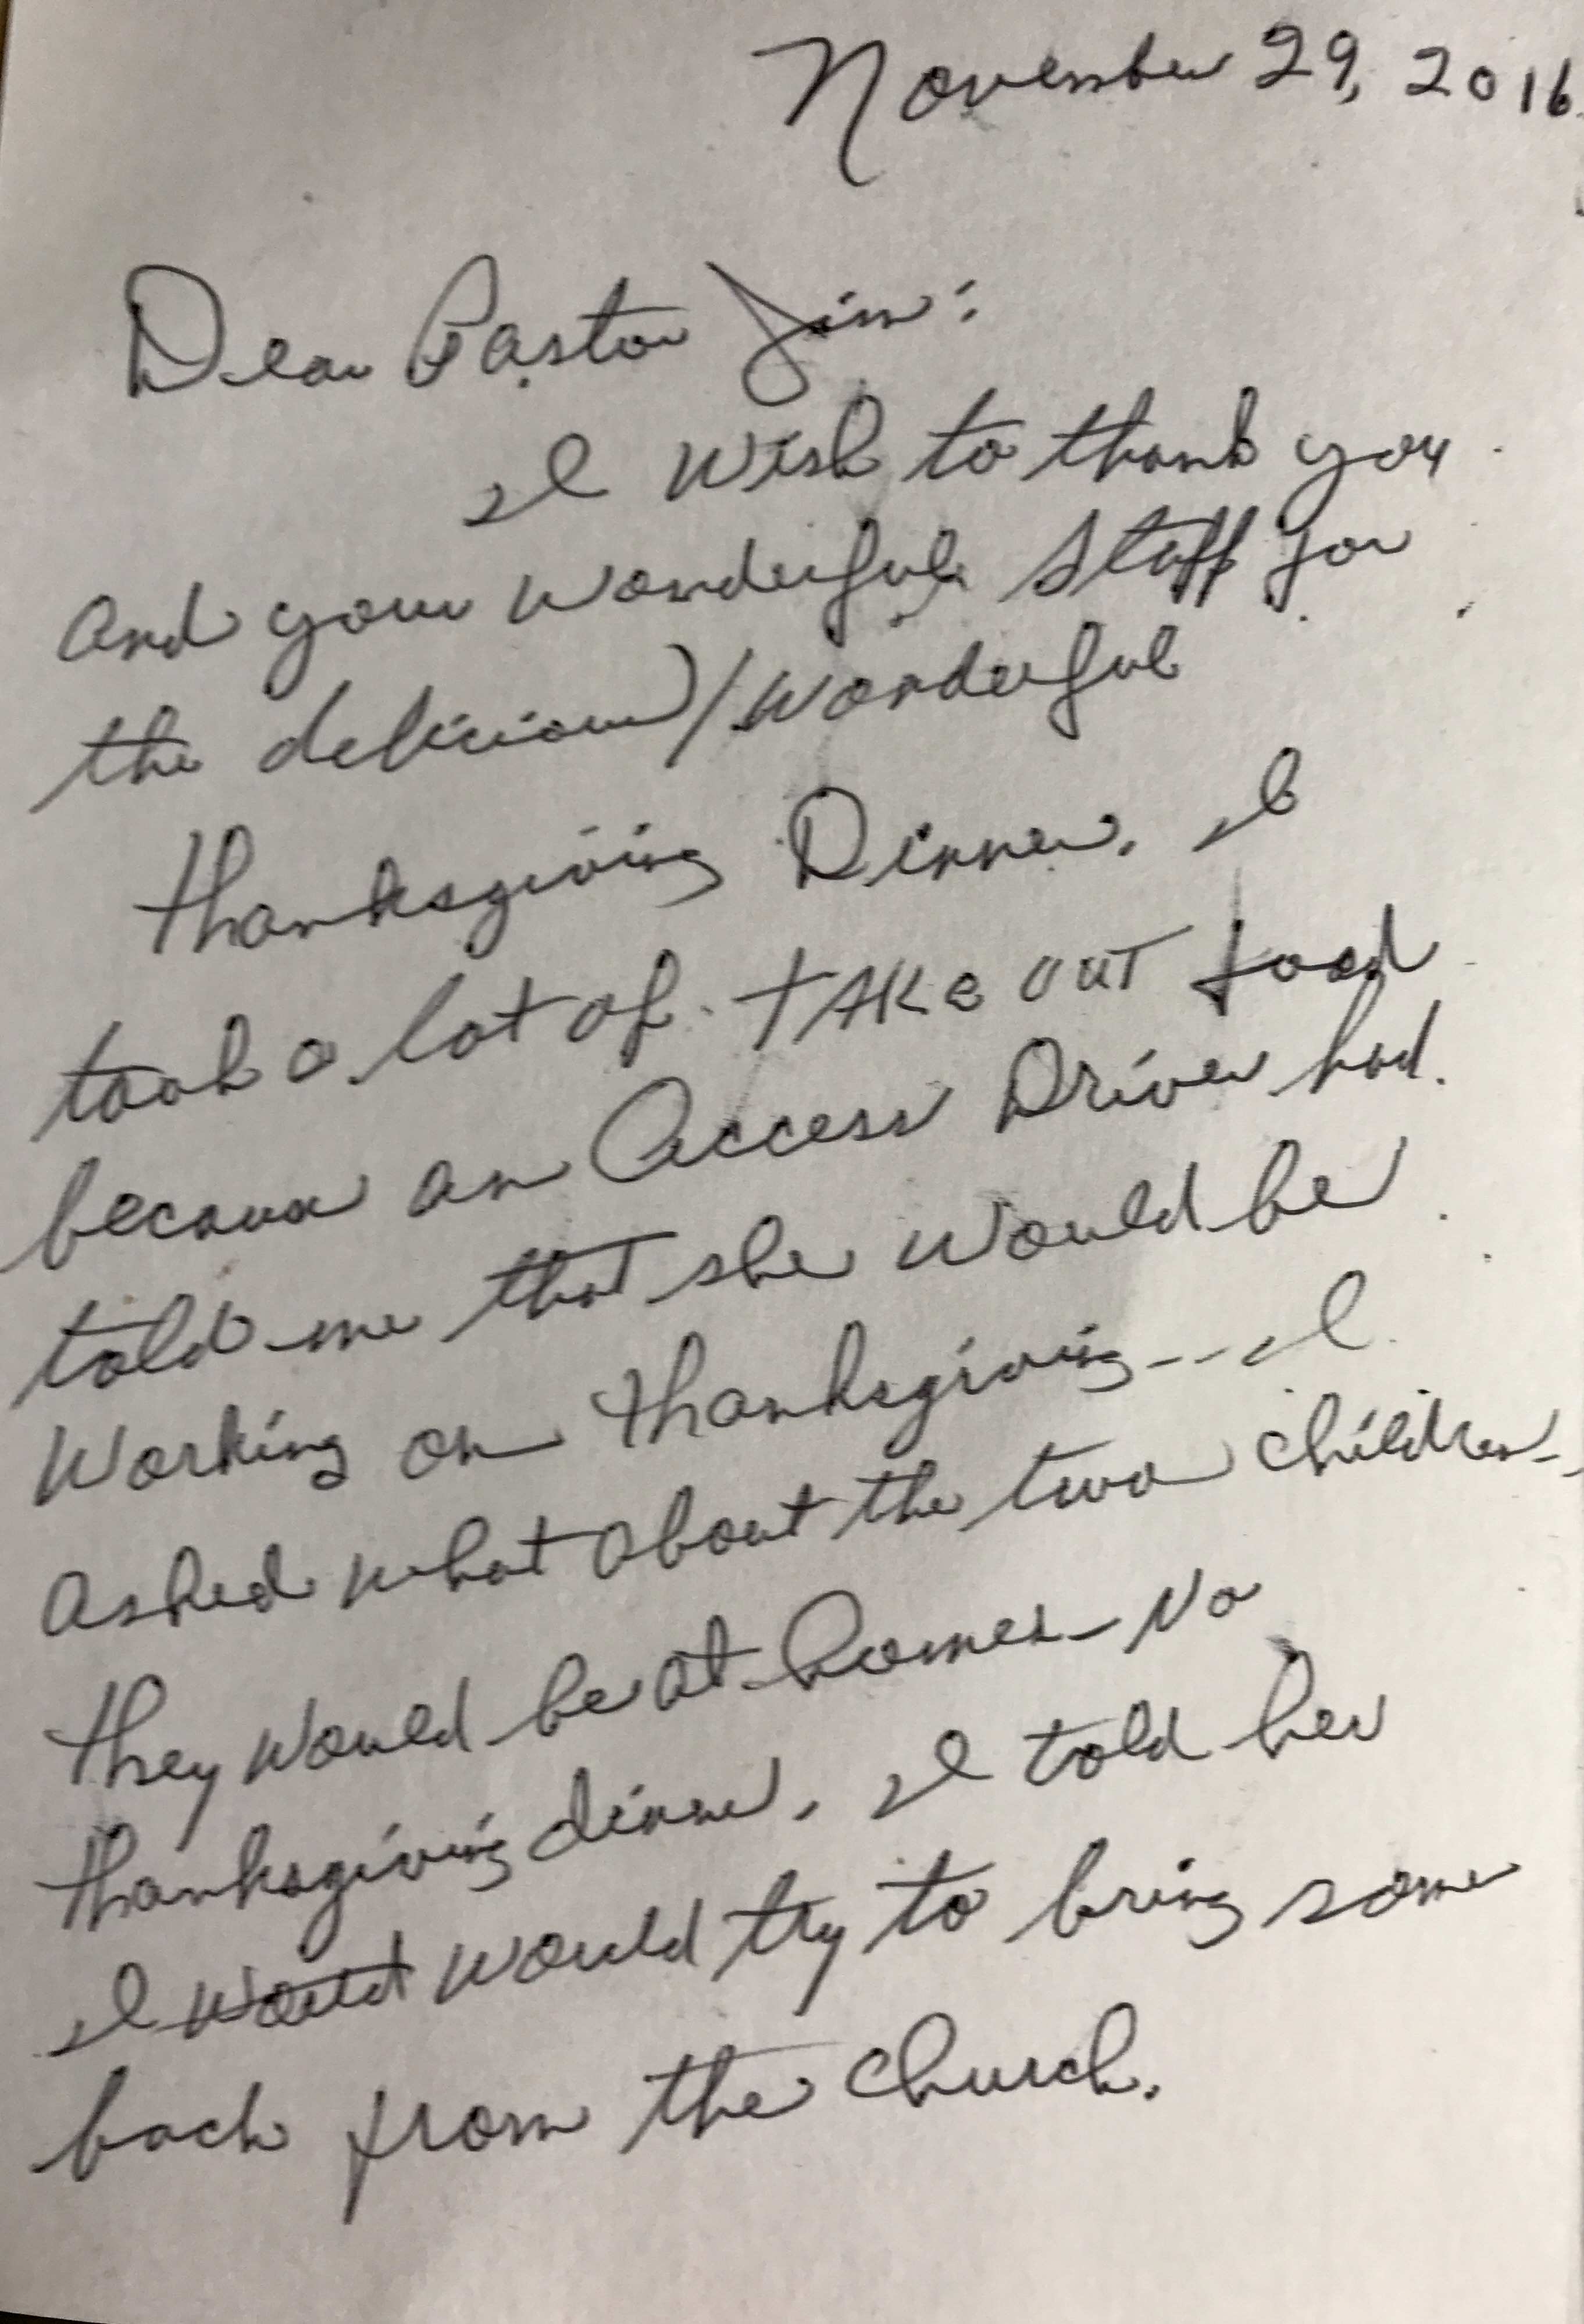 November 29, 2016
Dear Pastor Jim:
I wish to thank you
and your wonderful Staff for
the delicious/wonderful
Thanksgiving Dinner. I
took a lot of TAKE OUT food
because an Access Driver had
told me that she would be
working on Thanksgiving--- I
asked what about the two children--
they would be at home - No
Thanksgiving dinner. I told her
I would would try to bring some
back from the church.